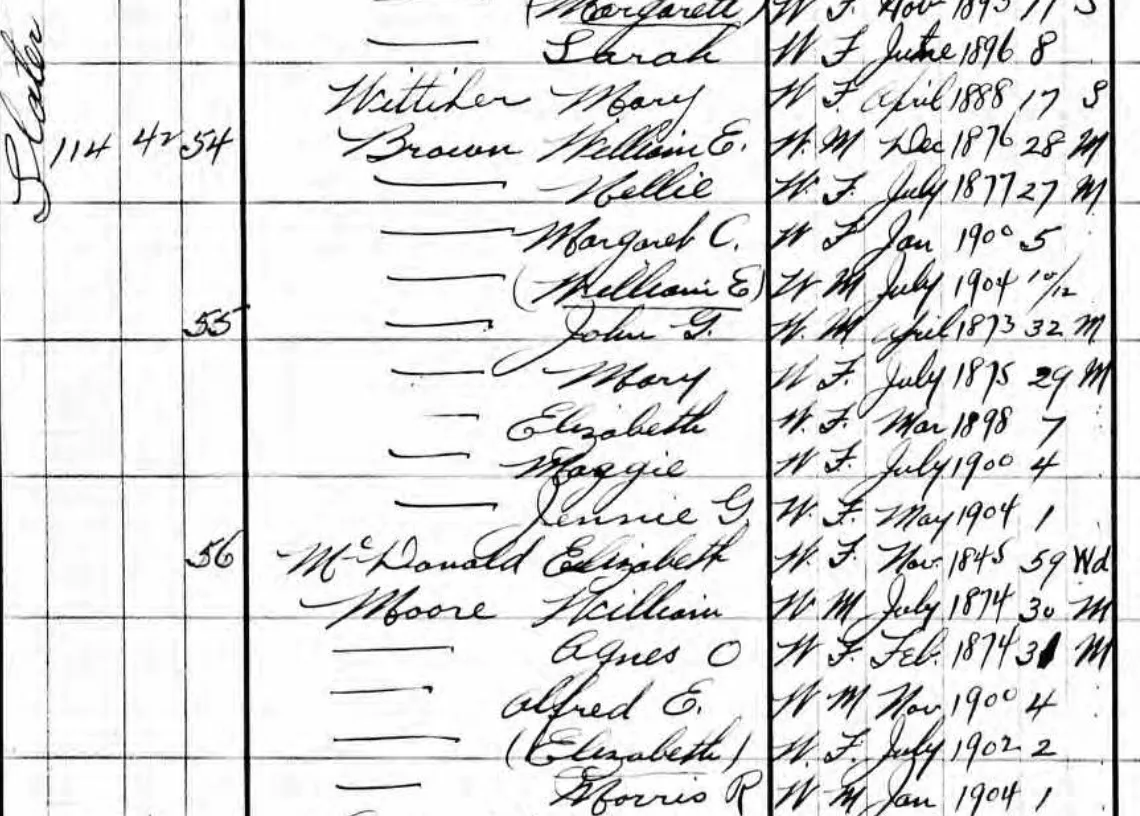 (Margarett) W F. Nov 1893 11 S
Slater
Sarah W F June 1896 8
Mary W F April 1888 17 S
114 42 54 Brown William E. W. M Dec 1876 28 M
Nellie W F. July 1877 27 M
Margaret C. W F Jan 1900 5
(William E) W M July 1904 10/12
55 John G. W. M April 1873 32 M
Mary W F. July 1875 29 M
Elizabeth W. F. Mar 1898 7
Maggie W F. July 1900 4
Jennie G W. F. May 1904 1
56 McDonald Elizabeth W. F. Nov. 1845 59 Wd
Moore William W M July 1874 30 M
Agnes O W F. Feb. 1874 31 M
Alfred E. W M Nov 1900 4
(Elizabeth) W. F. July 1902 2
Morris R W M Jan 1904 1